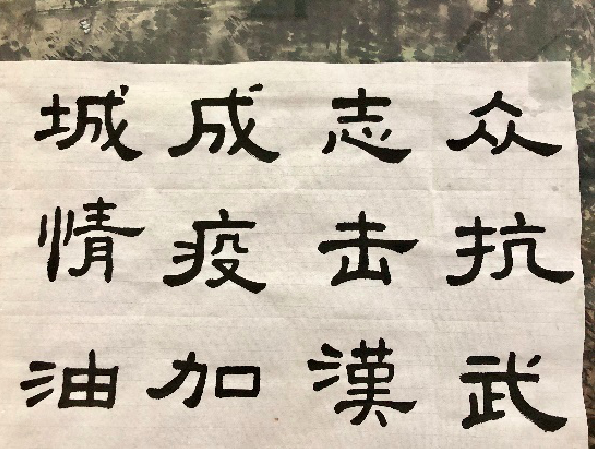 众志成城
抗击疫情
武漢加油